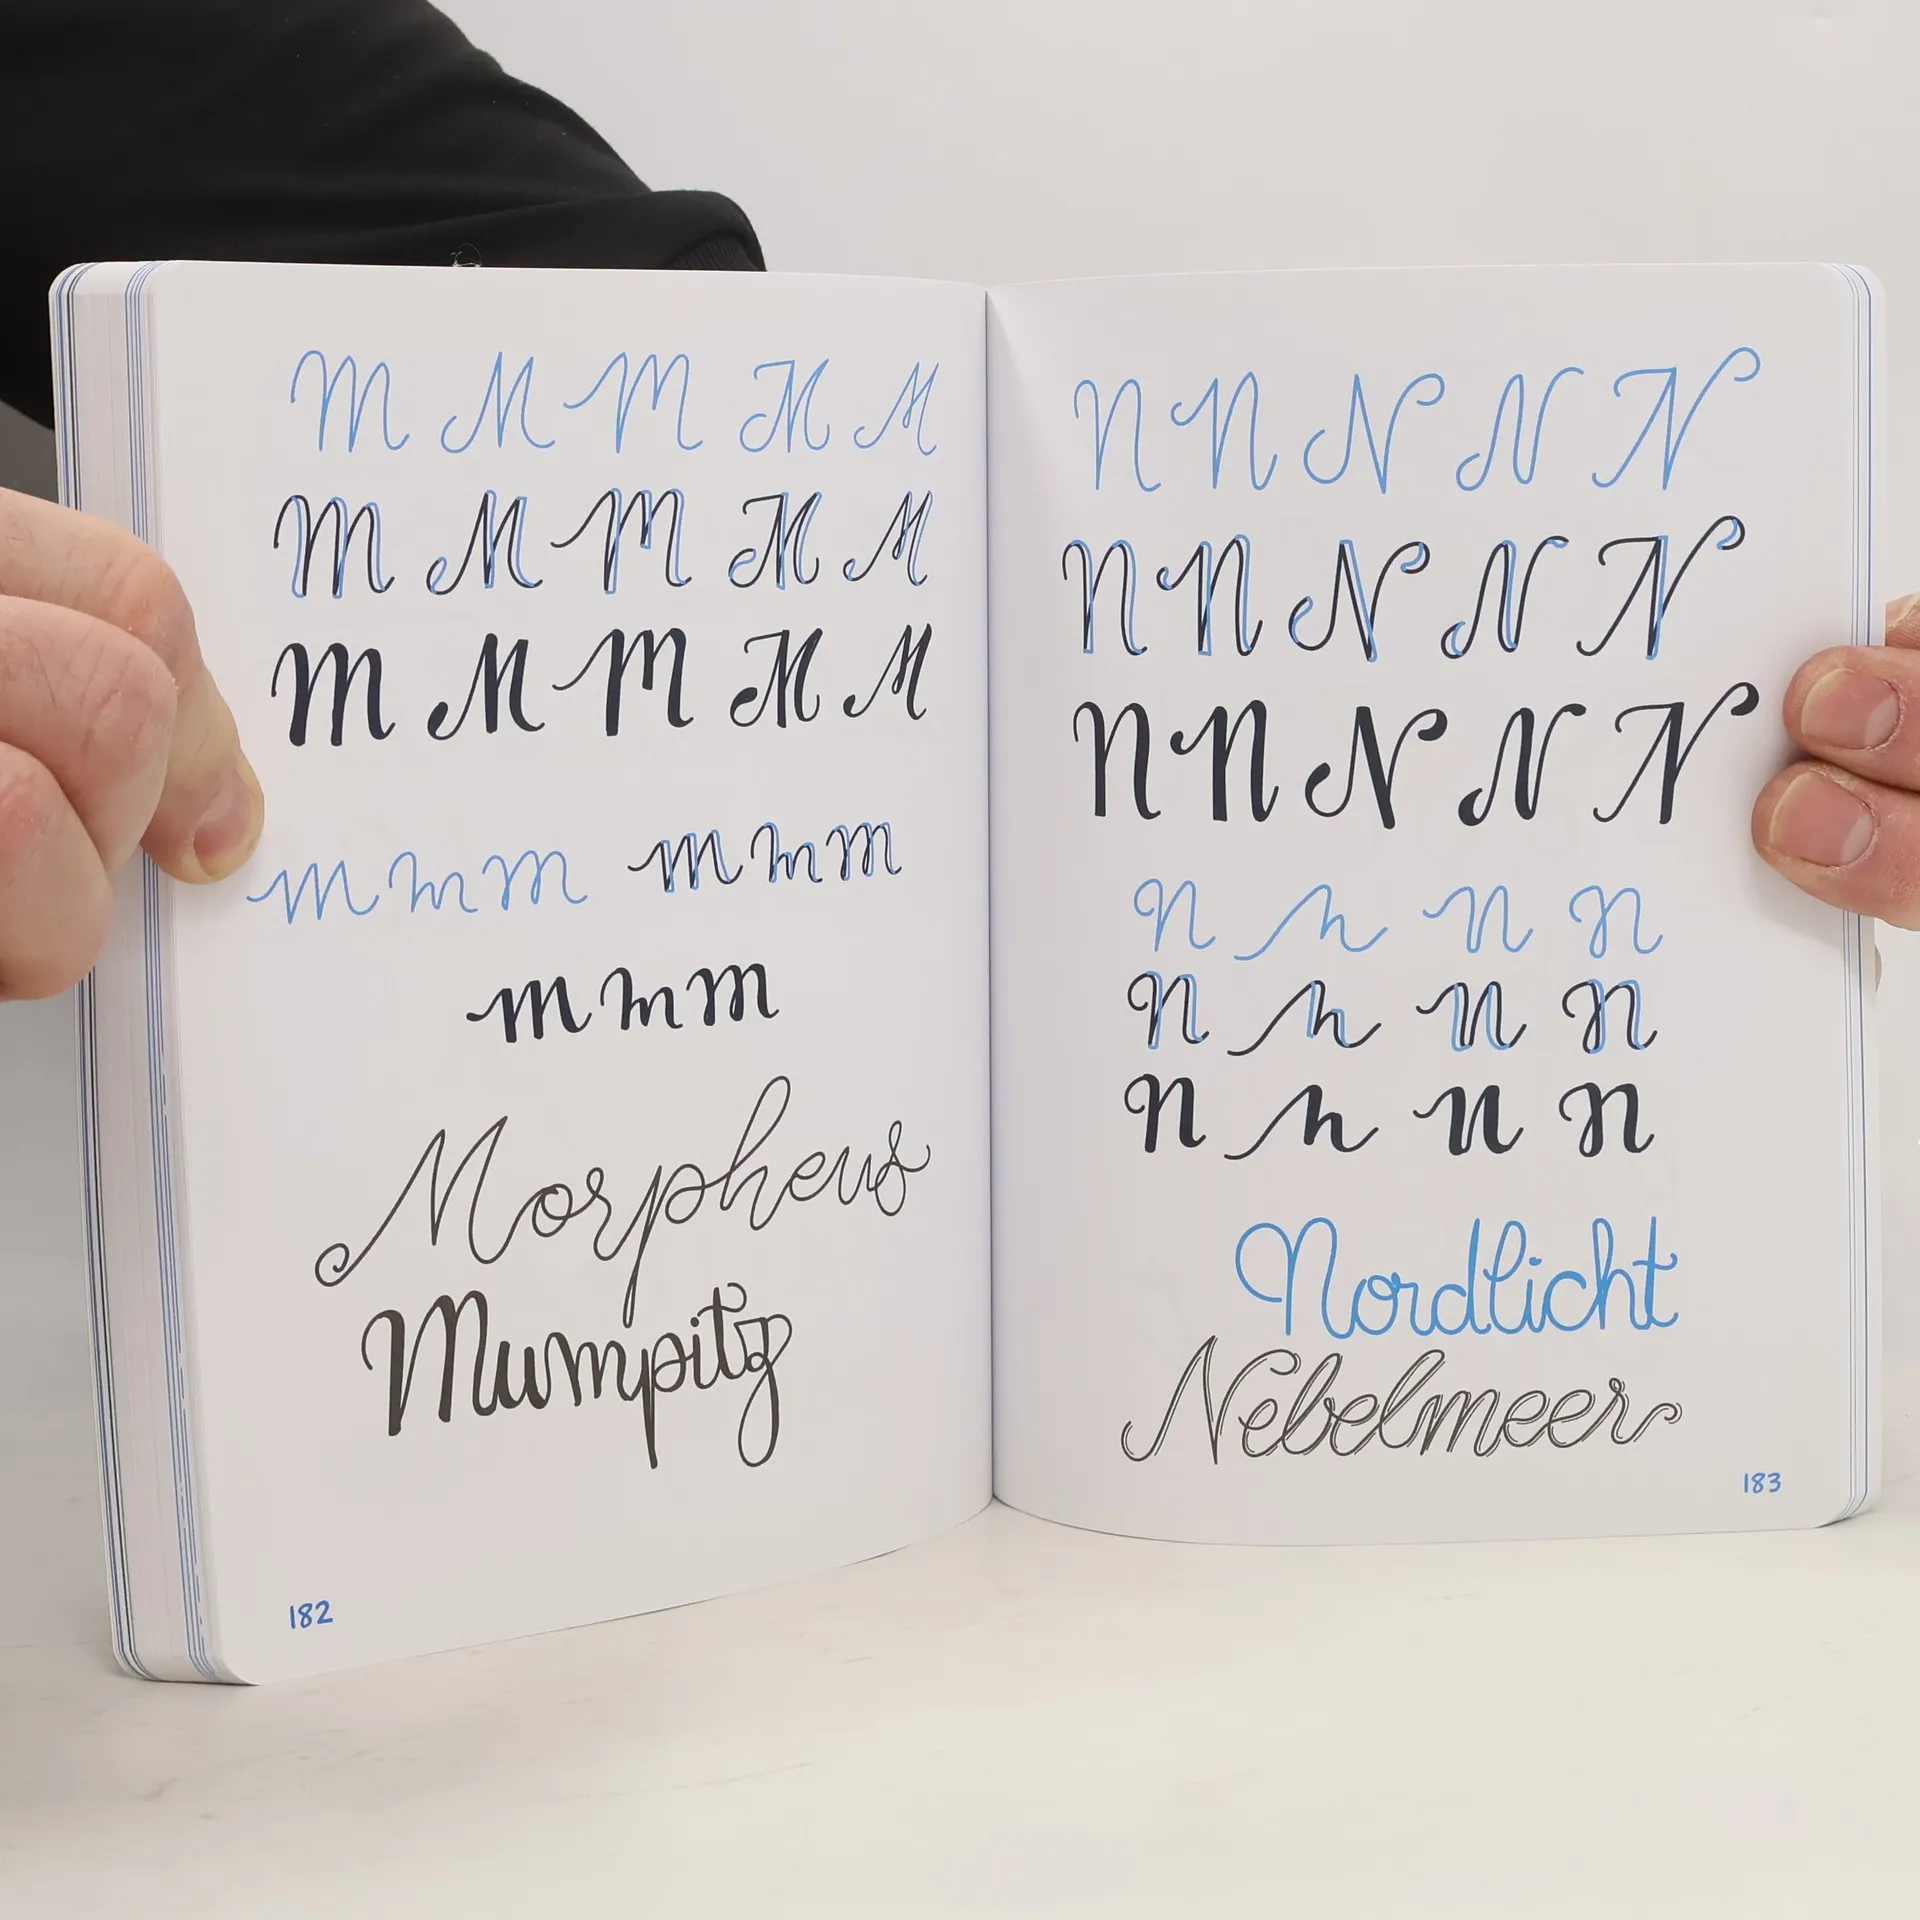 M M M M M
M M M M M
M M M M M
m m m m m m
m m m
Morpheus
Mumpitz
182
N N N N N
N N N N N
N N N N N
n n n n
n n n n
n n n n
Nordlicht
Nebelmeer
183